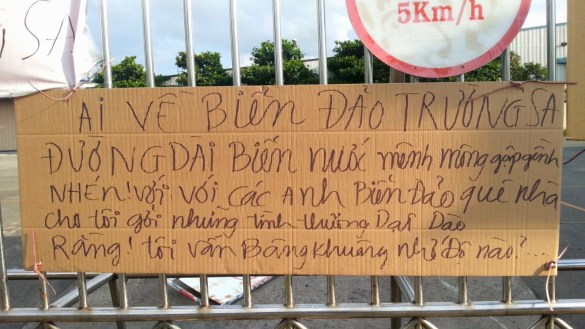 5Km/h
SA
AI VỀ BIỂN ĐẢO TRƯỜNG SA
ĐƯỜNG DÀI BIỂN NƯỚC mênh mông gập gềnh
NHÉN! với với CÁC ANH BIỂN ĐẢO quê nhà
cho tôi gởi những tình thương DẠT DÀO
RẰNG! tôi vẫn Bâng khuâng nhớ ĐÔ nào?...